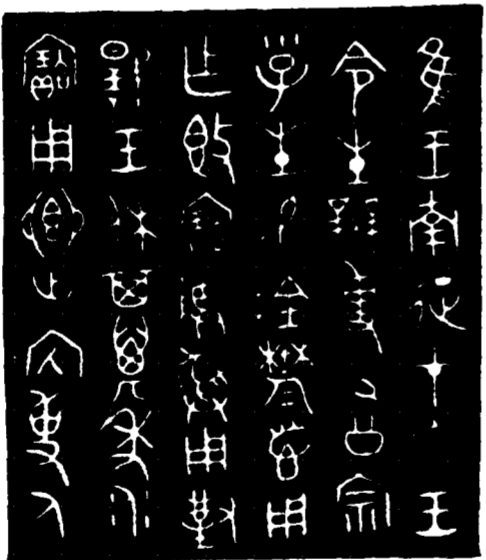 隹王南征才王
令生辨事公宗
小子生易金鬱鬯用
乍𣪘寶尊彝用對
揚王休其萬年永
寶用鄉出内事人